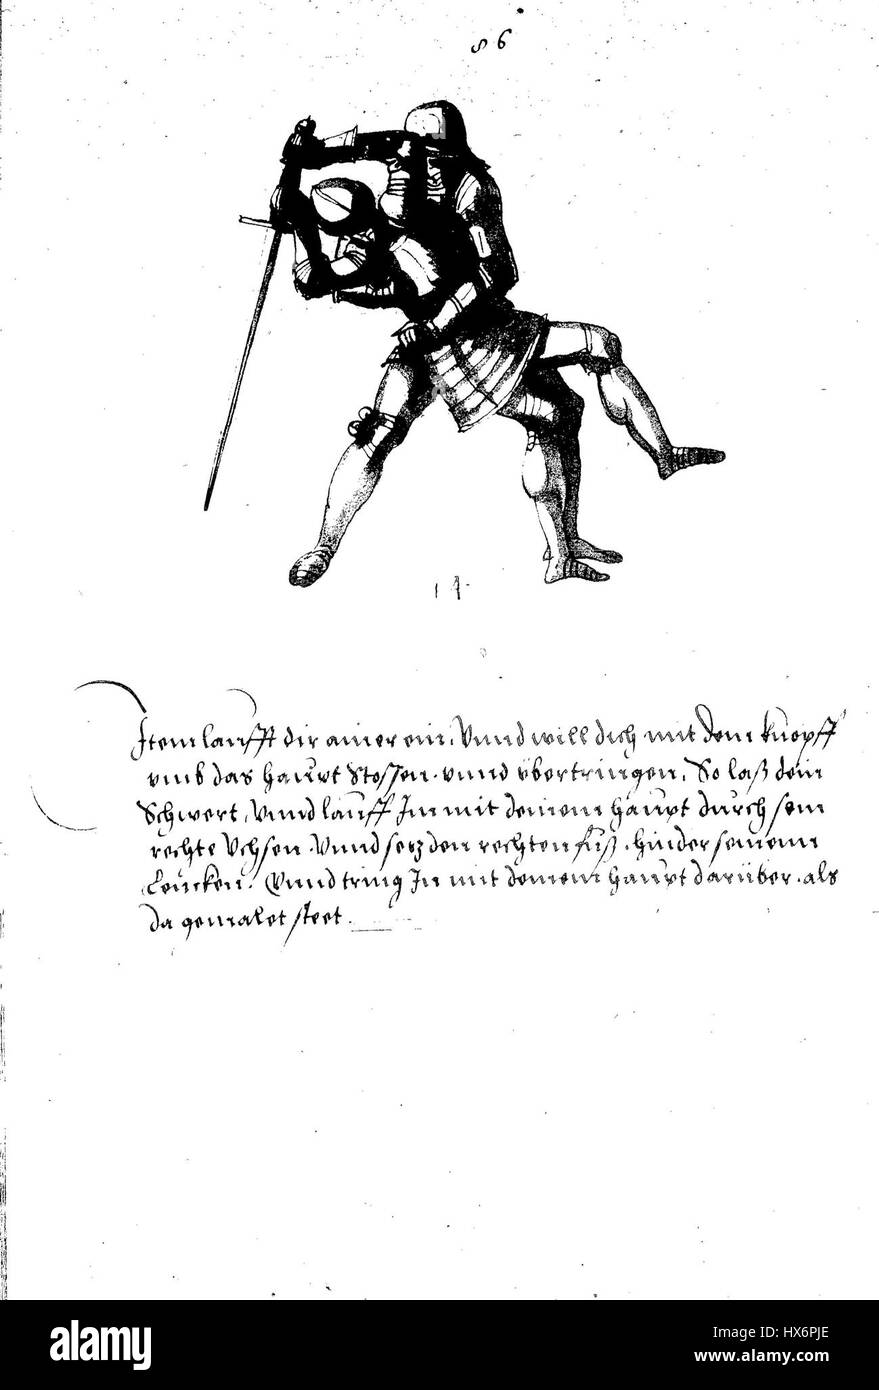 86
14
Item laufft dir ainer ein, Vnnd will dich mit dem knopff
vmb das haupt Stossen. vnnd vbertringen, So laß dein
Schwert, Vnnd lauff Im mit deinem haupt durch sein
rechte Vchsen. Vnnd setz den rechten fuß. hinder seinenn
Lencken. Vnnd tring In mit deinem haupt darüber. als
da gemalet steet.
alamy
Image ID: HX6PJE
www.alamy.com